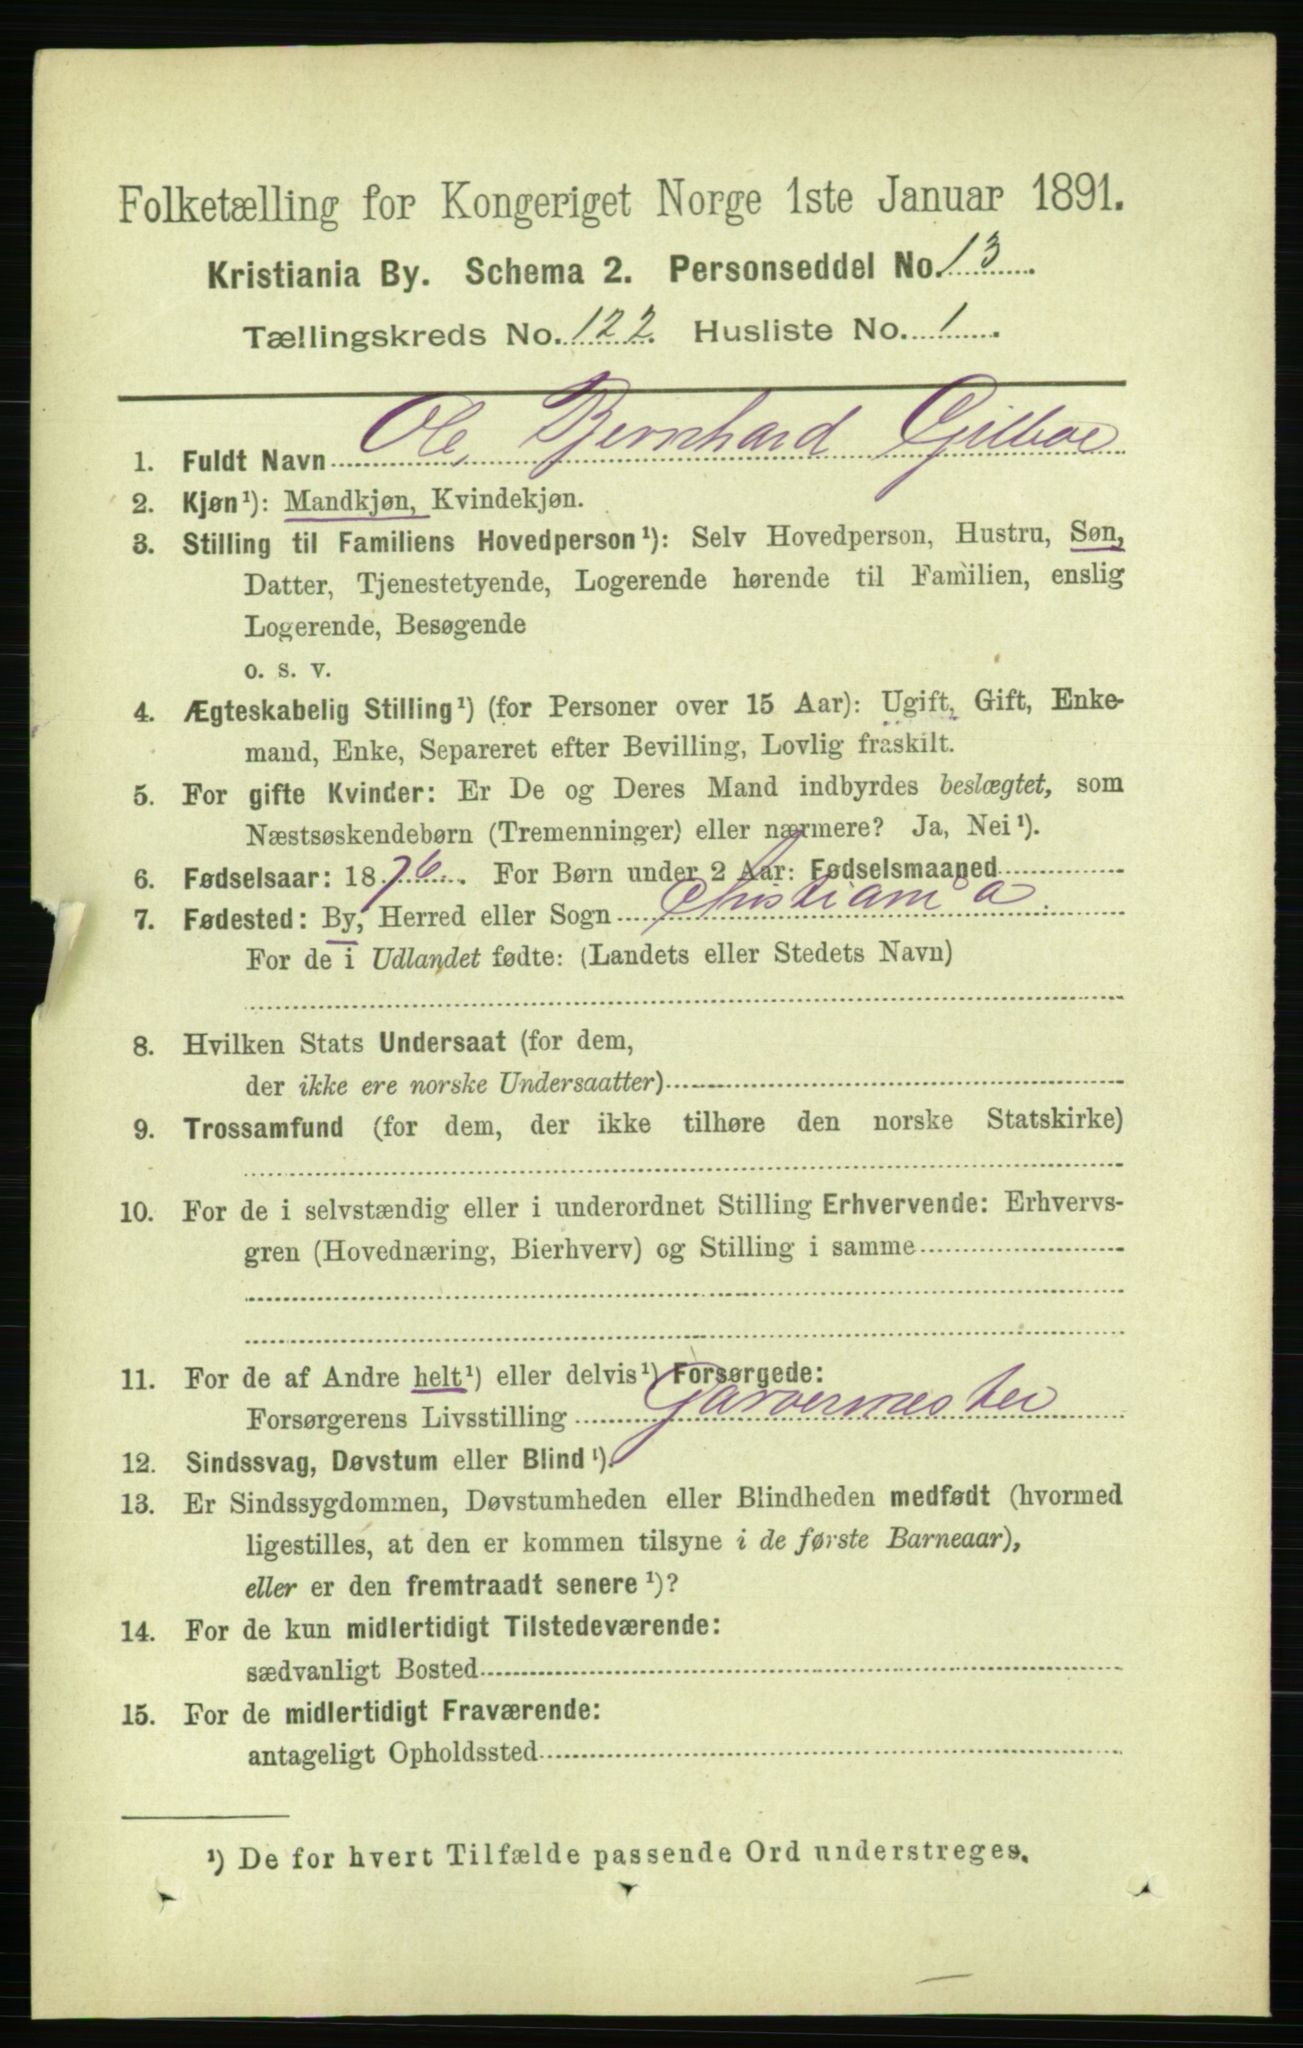 Folketælling for Kongeriget Norge 1ste Januar 1891.
Kristiania By. Schema 2. Personseddel No. 13.
Tællingskreds No. 122. Husliste No. 1.
1. Fuldt Navn Ole Bernhard Gilboe
2. Kjøn¹): Mandkjøn, Kvindekjøn.
3. Stilling til Familiens Hovedperson¹): Selv Hovedperson, Hustru, Søn,
Datter, Tjenestetyende, Logerende hørende til Familien, enslig
Logerende, Besøgende
o. s. v.
4. Ægteskabelig Stilling¹) (for Personer over 15 Aar): Ugift, Gift, Enke-
mand, Enke, Separeret efter Bevilling, Lovlig fraskilt.
5. For gifte Kvinder: Er De og Deres Mand indbyrdes beslægtet, som
Næstsøskendebørn (Tremenninger) eller nærmere? Ja, Nei¹).
6. Fødselsaar: 1876. For Børn under 2 Aar: Fødselsmaaned
7. Fødested: By, Herred eller Sogn Christiania
For de i Udlandet fødte: (Landets eller Stedets Navn)
8. Hvilken Stats Undersaat (for dem,
der ikke ere norske Undersaatter)
9. Trossamfund (for dem, der ikke tilhøre den norske Statskirke)
10. For de i selvstændig eller i underordnet Stilling Erhvervende: Erhvervs-
gren (Hovednæring, Bierhverv) og Stilling i samme
11. For de af Andre helt¹) eller delvis¹) Forsørgede:
Forsørgerens Livsstilling Garvermester
12. Sindssvag, Døvstum eller Blind¹).
13. Er Sindssygdommen, Døvstumheden eller Blindheden medfødt (hvormed
ligestilles, at den er kommen tilsyne i de første Barneaar),
eller er den fremtraadt senere¹)?
14. For de kun midlertidigt Tilstedeværende:
sædvanligt Bosted
15. For de midlertidigt Fraværende:
antageligt Opholdssted
¹) De for hvert Tilfælde passende Ord understreges.